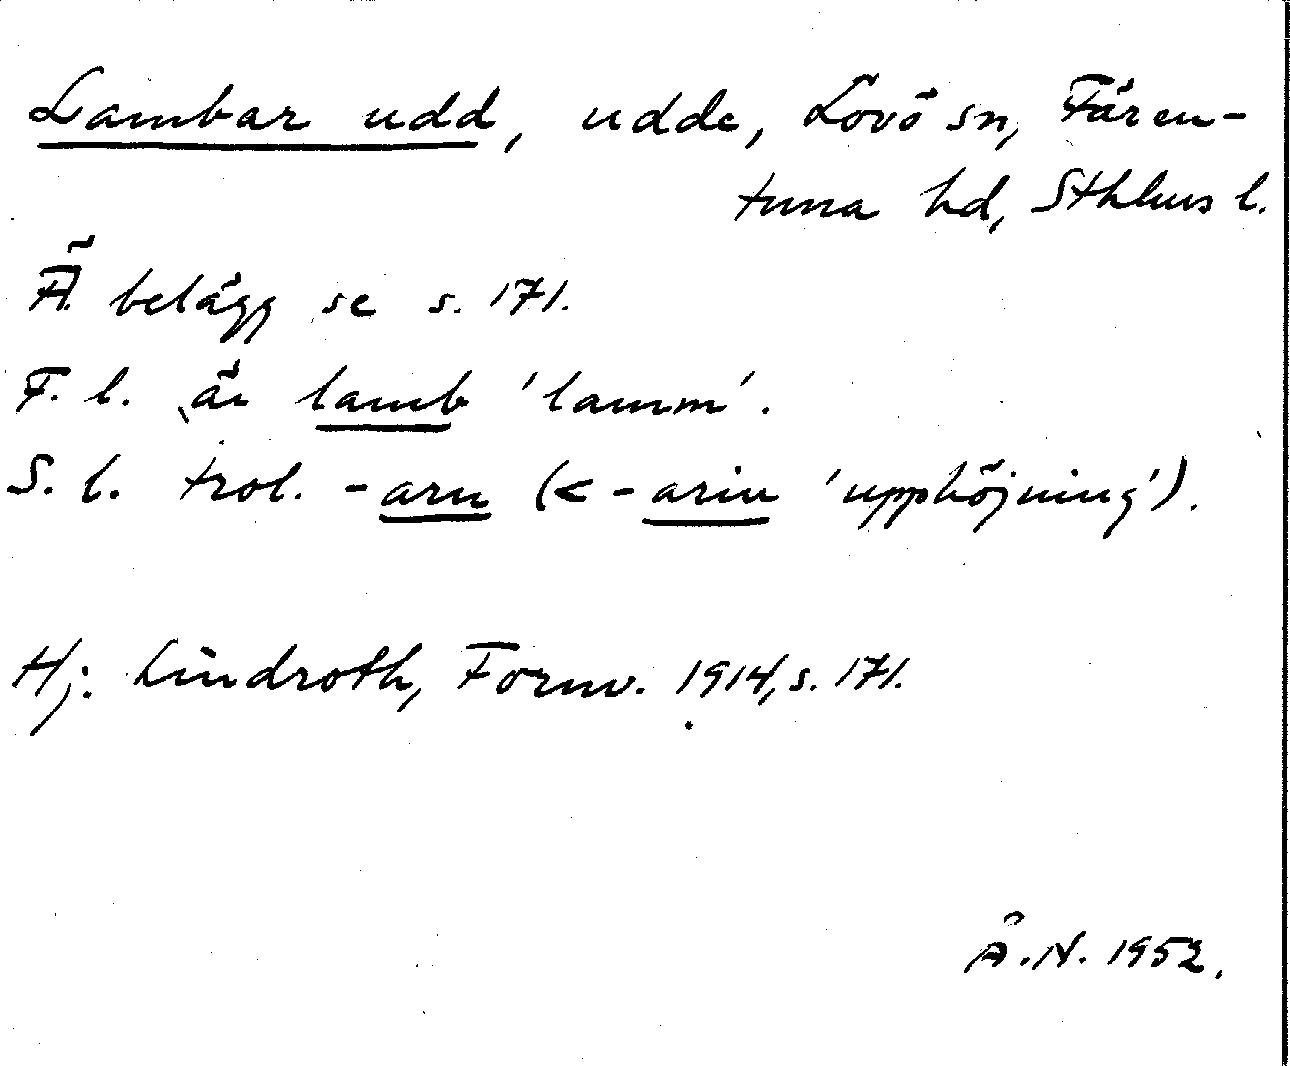 Lambar udd, udde, Lovö sn, Fären-
tuna hd, Sthlms l.
Ä. belägg se s. 171.
F. l. är lamb 'lamm'.
S. l. trol. -arn (< -arin 'upphöjning').
Hj. Lindroth, Fornv. 1914, s. 171.
Å.N. 1952.